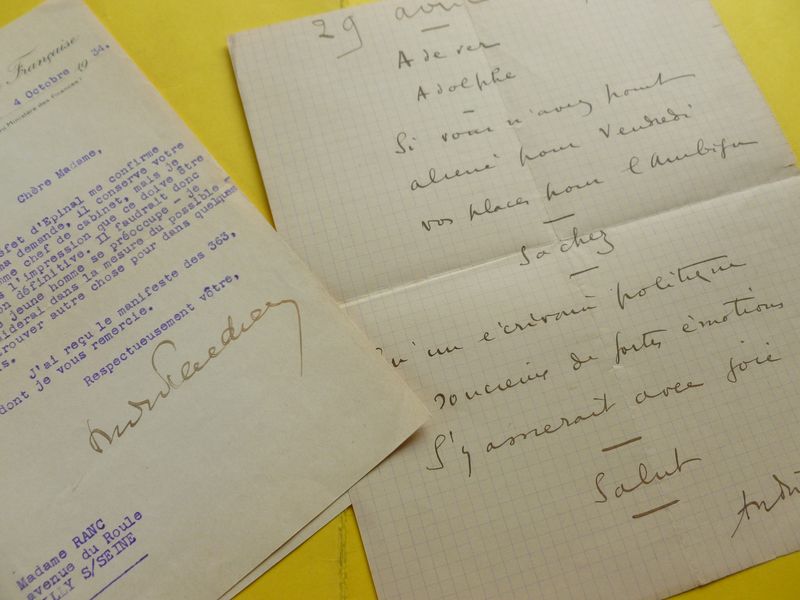 Française
4 Octobre 1934.
Ministère des Finances)
Chère Madame,
fet d'Epinal me confirme
ma demande, il conserve votre
me chef de cabinet, mais je
l'impression que ce doive être
on définitive. Il faudrait donc
jeune homme se préoccupe - je
iderai dans la mesure du possible -
rouver autre chose pour dans quelques
s.
J'ai reçu le manifeste des 363,
dont je vous remercie.
Respectueusement vôtre,
Madame RANC
avenue du Roule
LLY S/SEINE
29 avril
A de ver
Adolphe
Si vous n'avez point
aliéné pour Vendredi
vos places pour l'Ambigu
Sachez
Qu'un écrivain politique
soucieux de fortes émotions
S'y assierait avec joie
Salut
André